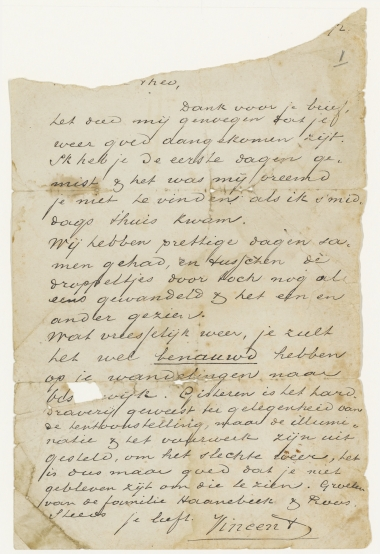 72
1
Theo,
Dank voor je brief,
het deed mij genoegen dat je
weer goed aangekomen zijt.
Ik heb je de eerste dagen ge-
mist & het was mij vreemd
je niet te vinden als ik s'mid-
dags thuis kwam.
Wij hebben prettige dagen sa-
men gehad, en tusschen de
droppeltjes door toch nog al
eens gewandeld & het een en
ander gezien.
Wat vreesselijk weer, je zult
het wel benauwd hebben
op je wandelingen naar
wijk. Gisteren is het hard
draverij geweest ter gelegenheid van
de tentoonstelling, maar de illumi-
natie & het vuurwerk zijn uit
gesteld, om het slechte weer, het
is dus maar goed dat je niet
gebleven zijt om die te zien. Groeten
van de familie Haanebeek & Roos.
Steeds
je liefh. Vincent